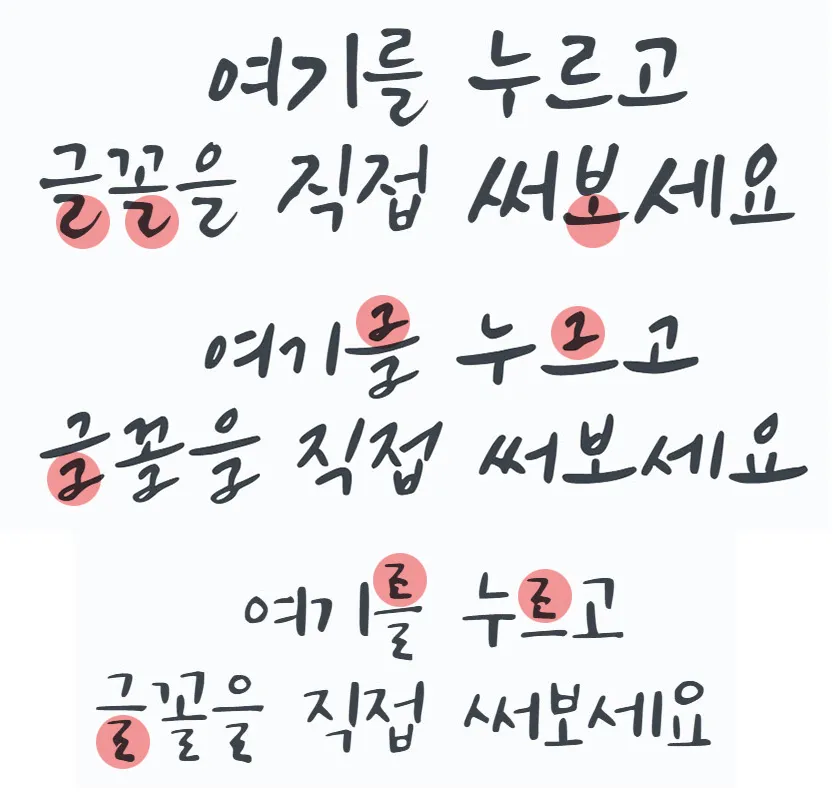 여기를 누르고
글꼴을 직접 써보세요
여기를 누르고
글꼴을 직접 써보세요
여기를 누르고
글꼴을 직접 써보세요